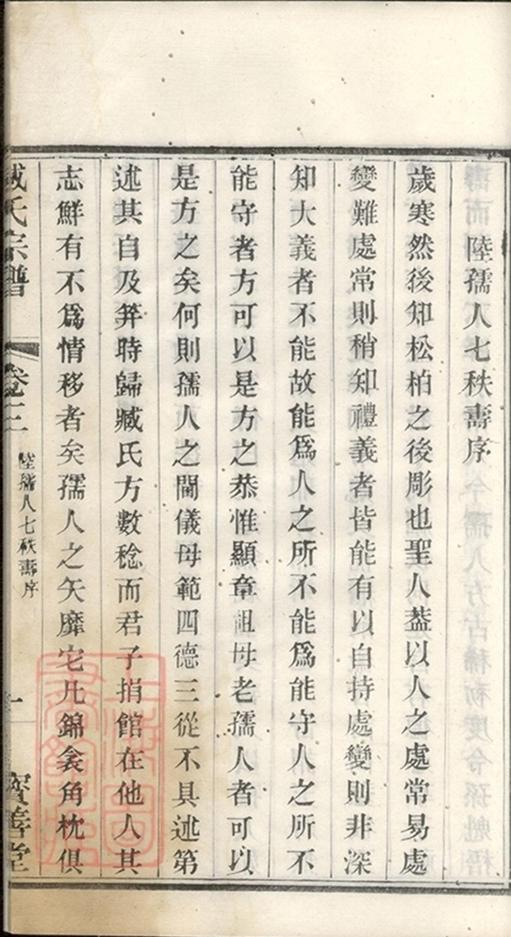 陸孺人七秩壽序
歲寒然後知松柏之後彫也聖人葢以人之處常易處
變難處常則稍知禮義者皆能有以自持處變則非深
知大義者不能故能爲人之所不能爲能守人之所不
能守者方可以是方之恭惟顯章祖母老孺人者可以
是方之矣何則孺人之閫儀母範四德三從不具述第
述其自及笄時歸臧氏方數稔而君子捐館在他人其
志鮮有不爲情移者矣孺人之矢靡宅凡錦衾角枕俱
臧氏宗譜
卷三
陸孺人七秩壽序
一
寶善堂